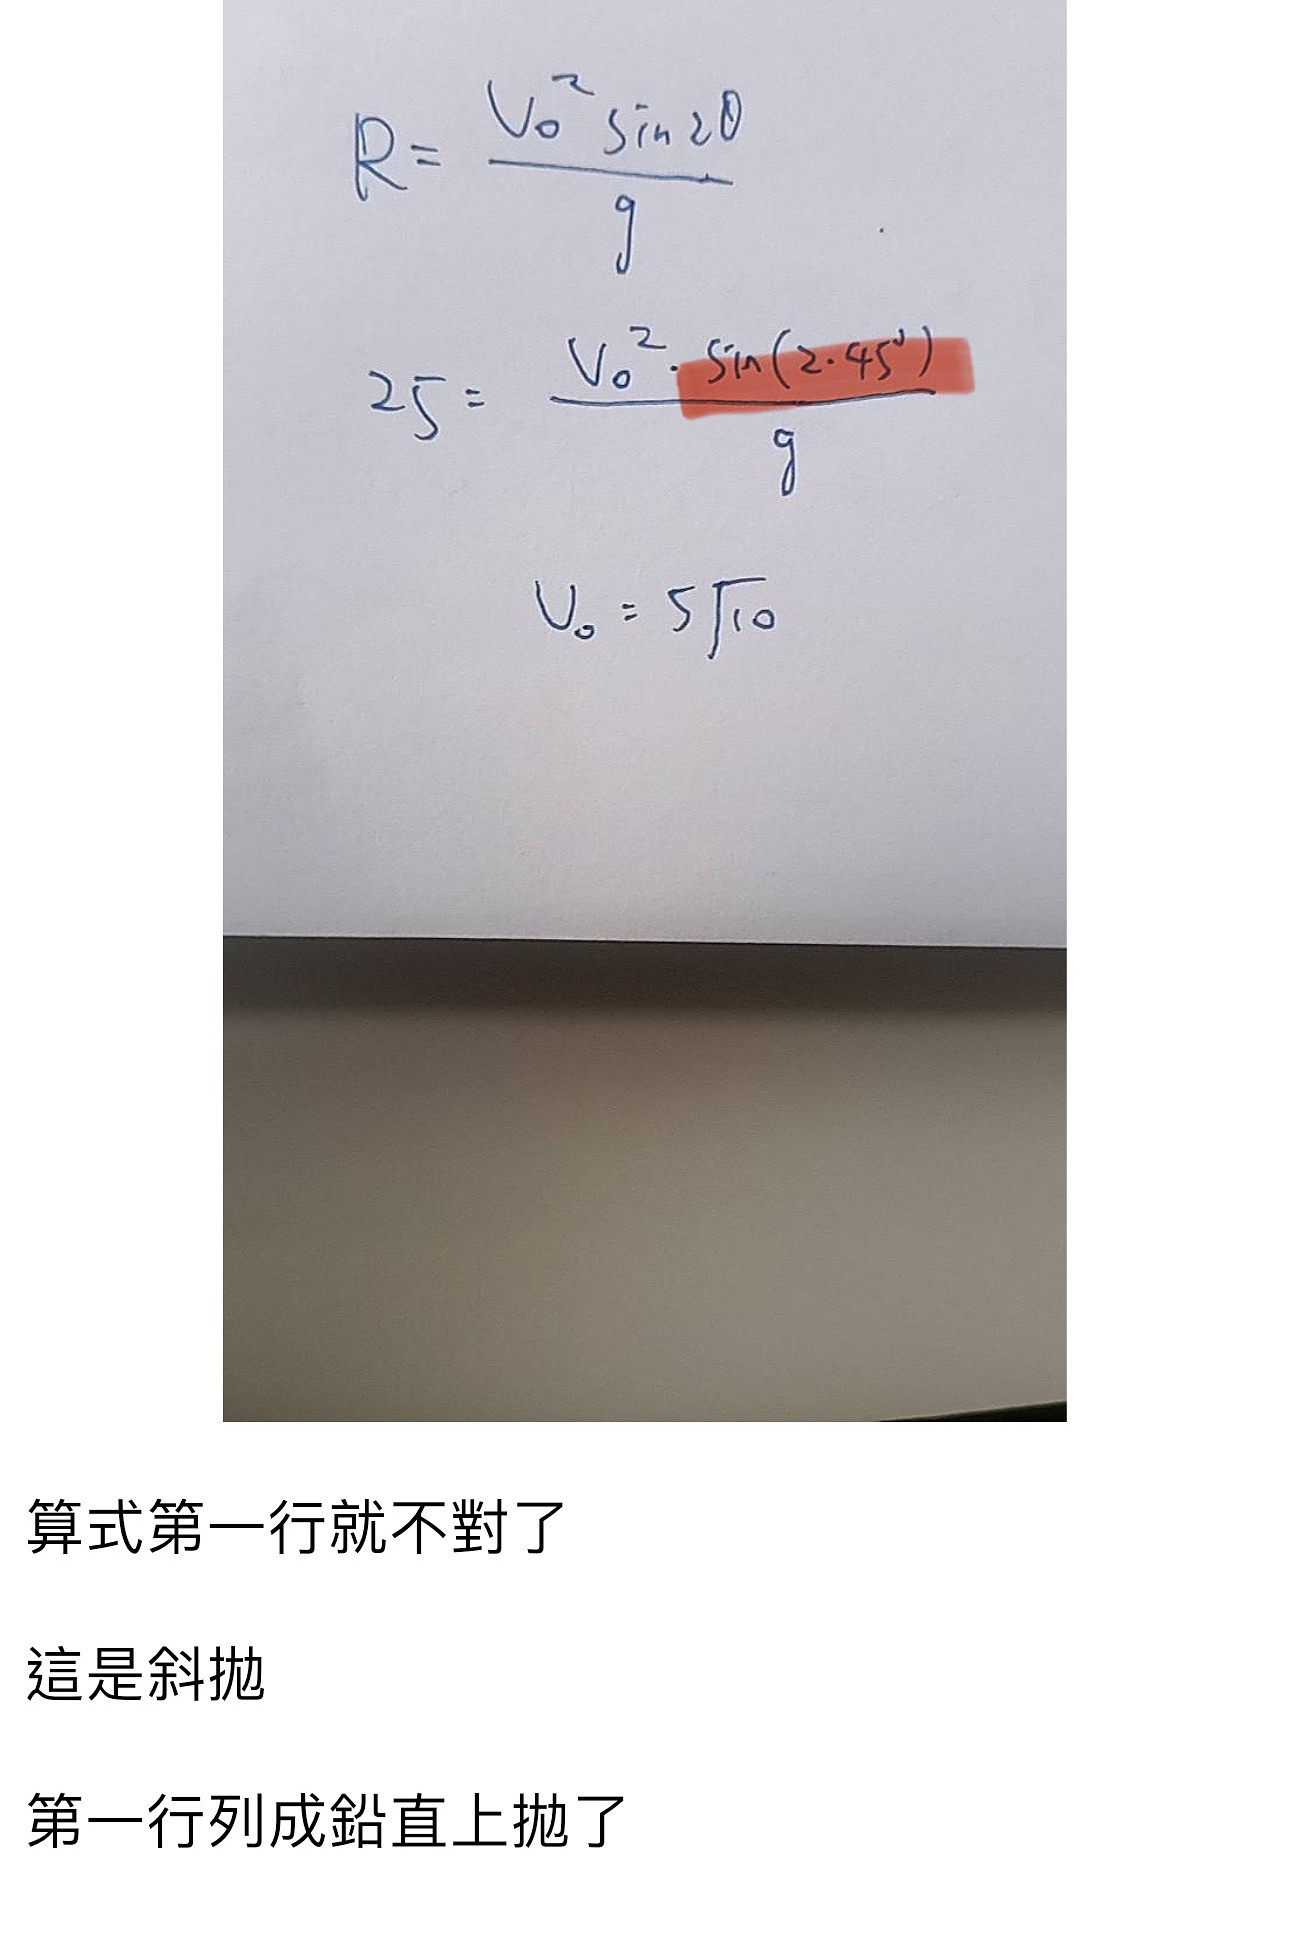 R = V₀² sin2θ / g
25 = V₀² · sin(2·45°) / g
V₀ = 5√10
算式第一行就不對了
這是斜拋
第一行列成鉛直上拋了